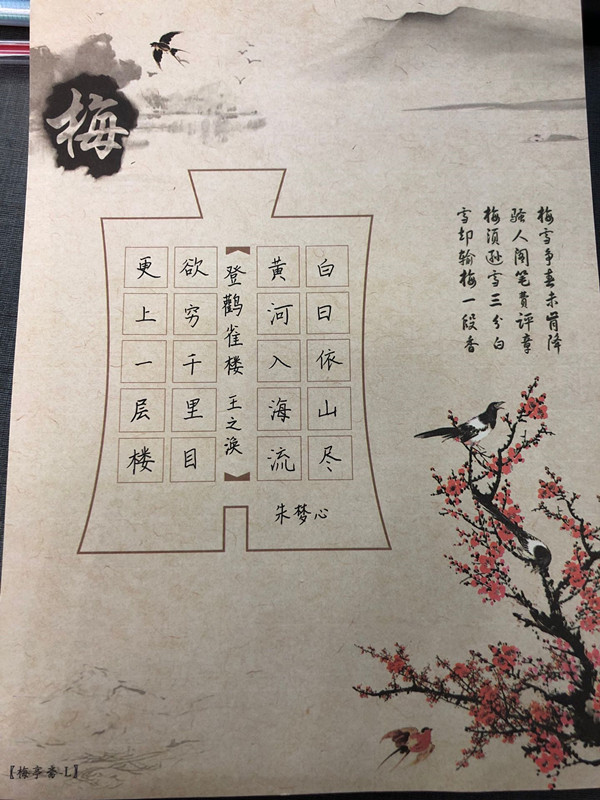 梅
梅雪争春未肯降
骚人阁笔费评章
梅须逊雪三分白
雪却输梅一段香
白日依山尽
黄河入海流
登鹳雀楼 王之涣
欲穷千里目
更上一层楼
朱梦心
〖梅亭香-L〗